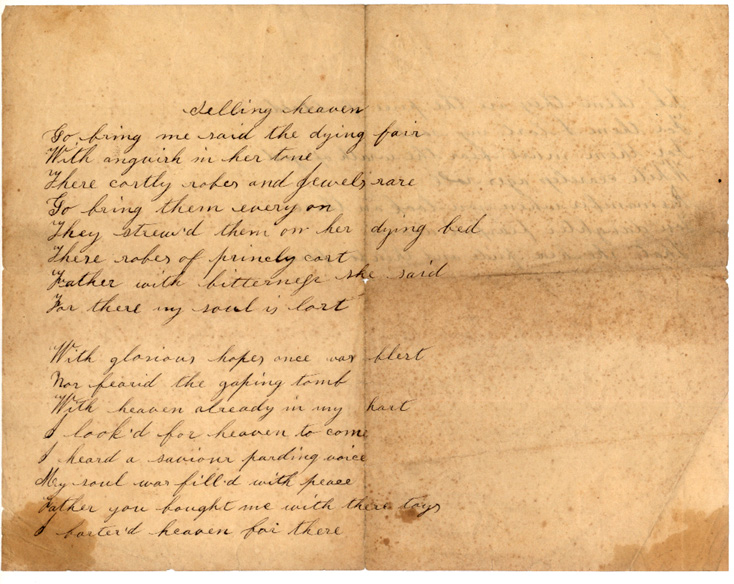 Selling heaven
Go bring me said the dying fair
With anguish in her tone
There costly robes and Jewels rare
Go bring them every on
They strew'd them on her dying bed
There robes of princely cost
Father with bitternefs she said
For there my soul is lost
With glorious hopes once was blest
Nor feard the gaping tomb
With heaven already in my hart
I look'd for heaven to come
I heard a saviour parding voice
My soul was fill'd with peace
Father you bought me with there toys
I barter'd heaven for there